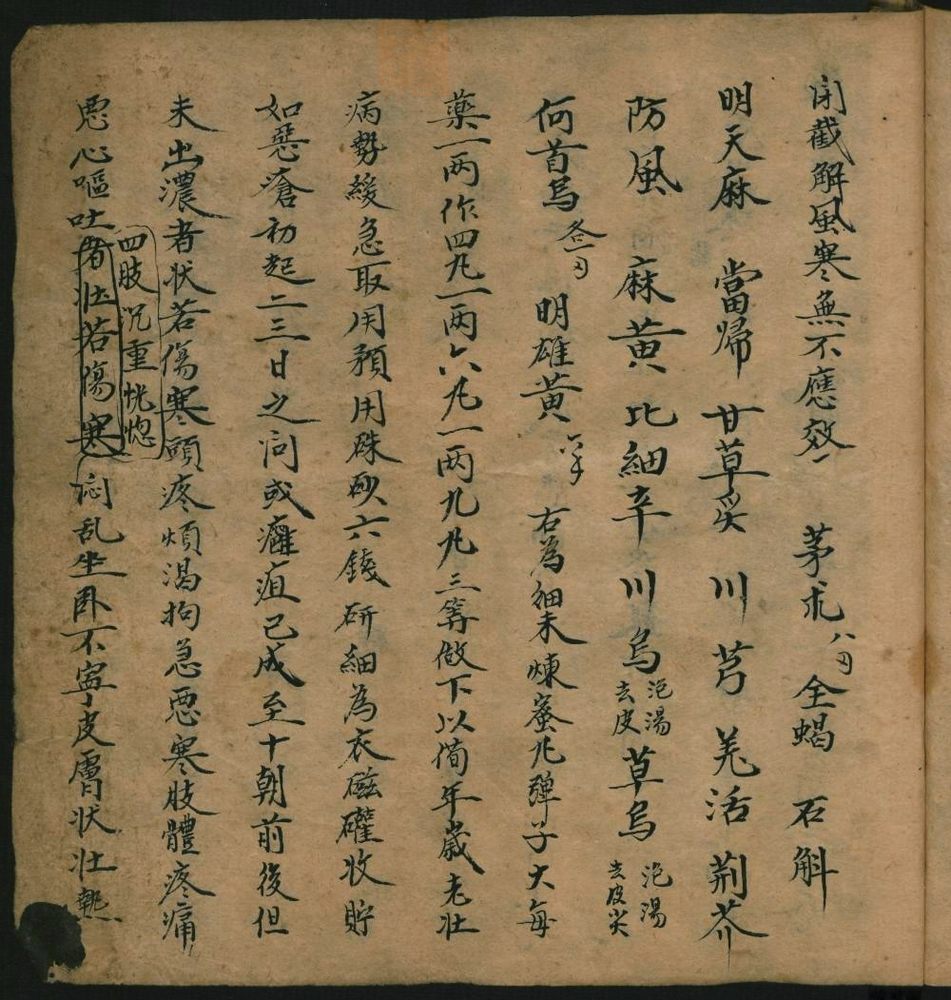 閉截解風寒無不應效 茅朮八匁全蝎 石斛
明天麻 當歸 甘草炙 川芎 羌活 荊芥
防風 麻黄 比細辛 川烏泡湯去皮草烏泡湯去皮尖
何首烏各一匁 明雄黄六千 右為細末煉蜜凡彈子大每
藥一两作四凡一两六凡一两九凡三等做下以僃年歲老壯
病勢緩急取用預用硃砂六錢研細為衣磁礶收貯
如惡瘡初起二三日之间或癰疽已成至十朝前後但
未出濃者状若傷寒頭疼煩渴拘急恶寒肢體疼痛
恶心嘔吐者壮若傷寒四肢沉重恍惚闷乱坐卧不寧皮膚状壮熱